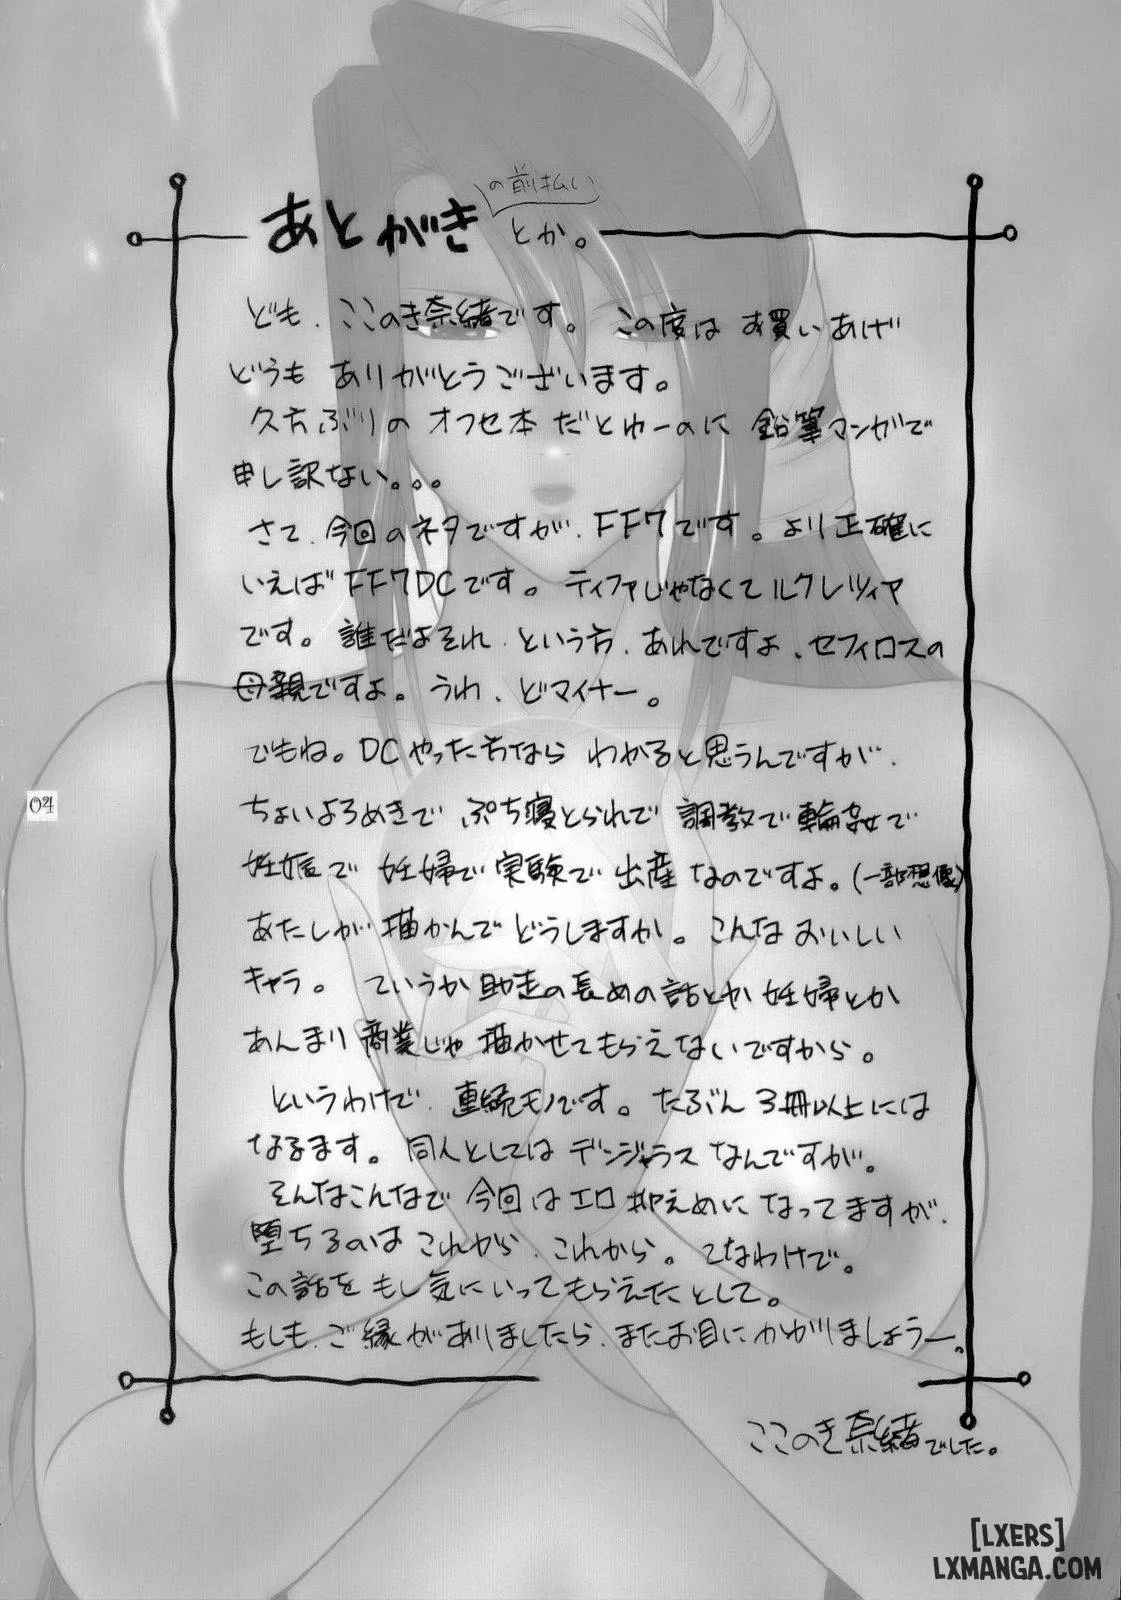 の前払い
あとがき とか。
ども、ここのき奈緒です。この度は お買いあげ
どうも ありがとうございます。
久方ぶりの オフセ本 だとゆーのに 鉛筆マンガで
申し訳ない。。。
さて、今回のネタですが、FF7です。より正確に
いえば FF7DCです。ティファじゃなくて ルクレツィア
です。誰だよそれ、という方、あれですよ、セフィロスの
母親ですよ。うわ、どマイナー。
でもね。DCやった方なら わかると思うんですが、
ちょいよろめきで ぷち寝とられで 調教で輪姦で
妊娠で 妊婦で 実験で 出産 なのですよ。(一部想像)
あたしが 描かんで どうしますか。こんな おいしい
キャラ。ていうか 助走の長めの話とか 妊婦とか
あんまり 商業じゃ 描かせてもらえないですから。
というわけで、連続モノです。たぶん 3冊以上には
なるます。同人としては デンジャラス なんですが。
そんなこんなで 今回は エロ 抑えめに なってますが、
堕ちるのは これから、これから。てなわけで。
この話を もし気にいってもらえたとして。
もしも、ご縁がありましたら、またお目にかかりましょうー。
ここのき奈緒でした。
04
[LXERS]
LXMANGA.COM